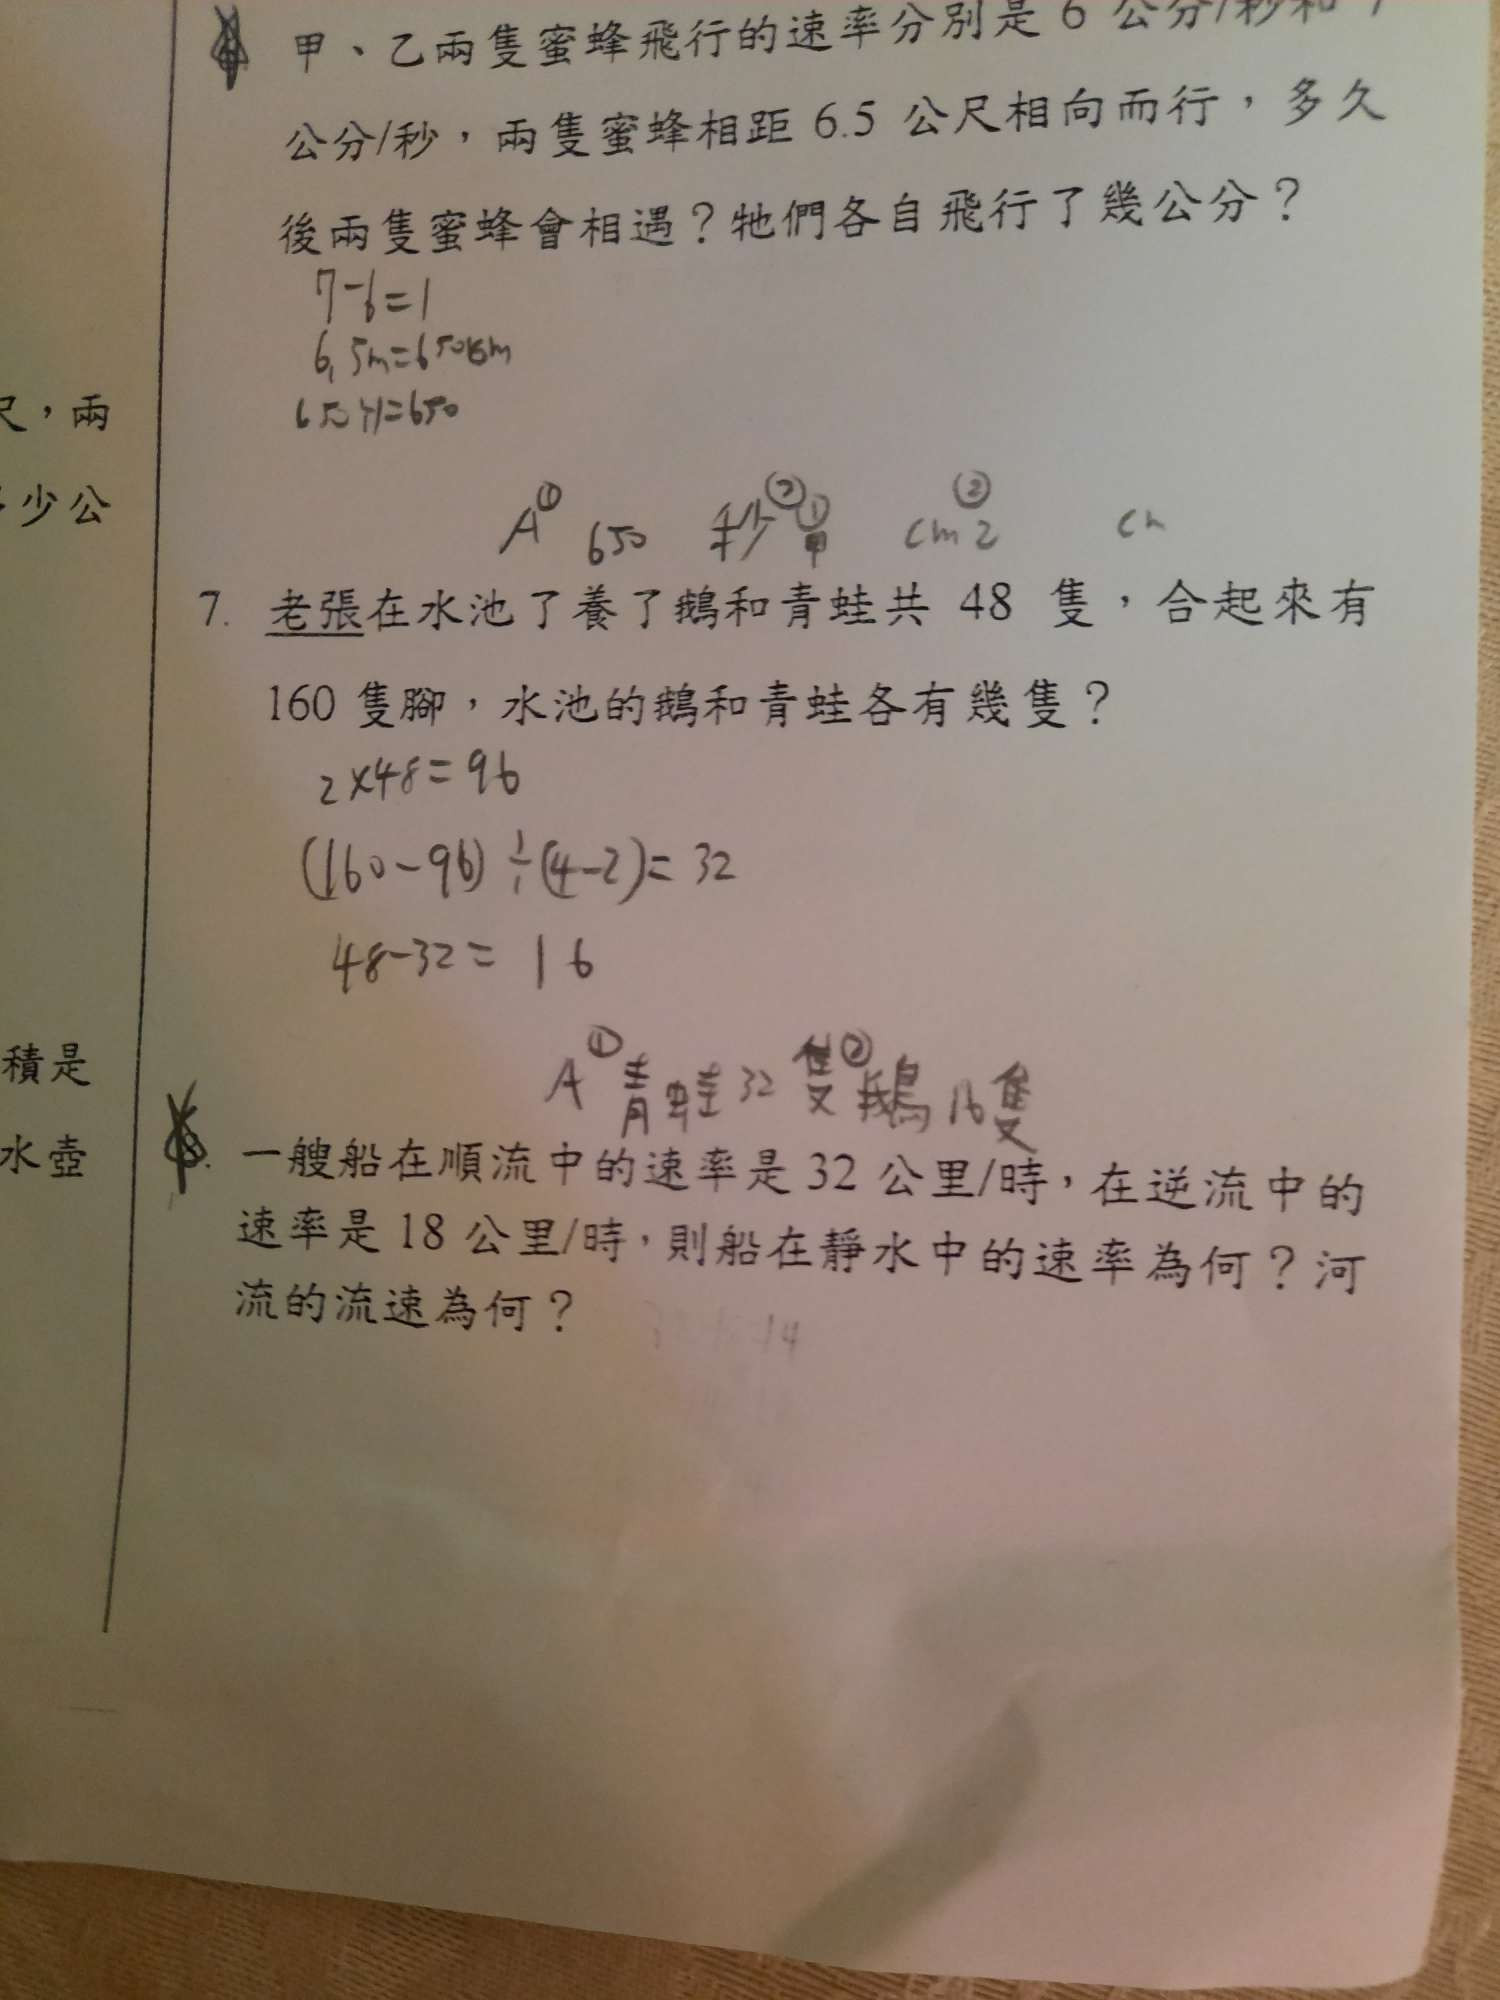 甲、乙兩隻蜜蜂飛行的速率分別是 6 公分/秒和
公分/秒，兩隻蜜蜂相距 6.5 公尺相向而行，多久
後兩隻蜜蜂會相遇？牠們各自飛行了幾公分？
7-6=1
6.5m=650cm
650÷1=650
A① 650 秒②①甲 cm② cm
尺，兩
少公
7. 老張在水池了養了鵝和青蛙共 48 隻，合起來有
160 隻腳，水池的鵝和青蛙各有幾隻？
2×48=96
(160-96)÷(4-2)=32
48-32=16
A①青蛙32隻②鵝16隻
積是
水壺
一艘船在順流中的速率是 32 公里/時，在逆流中的
速率是 18 公里/時，則船在靜水中的速率為何？河
流的流速為何？